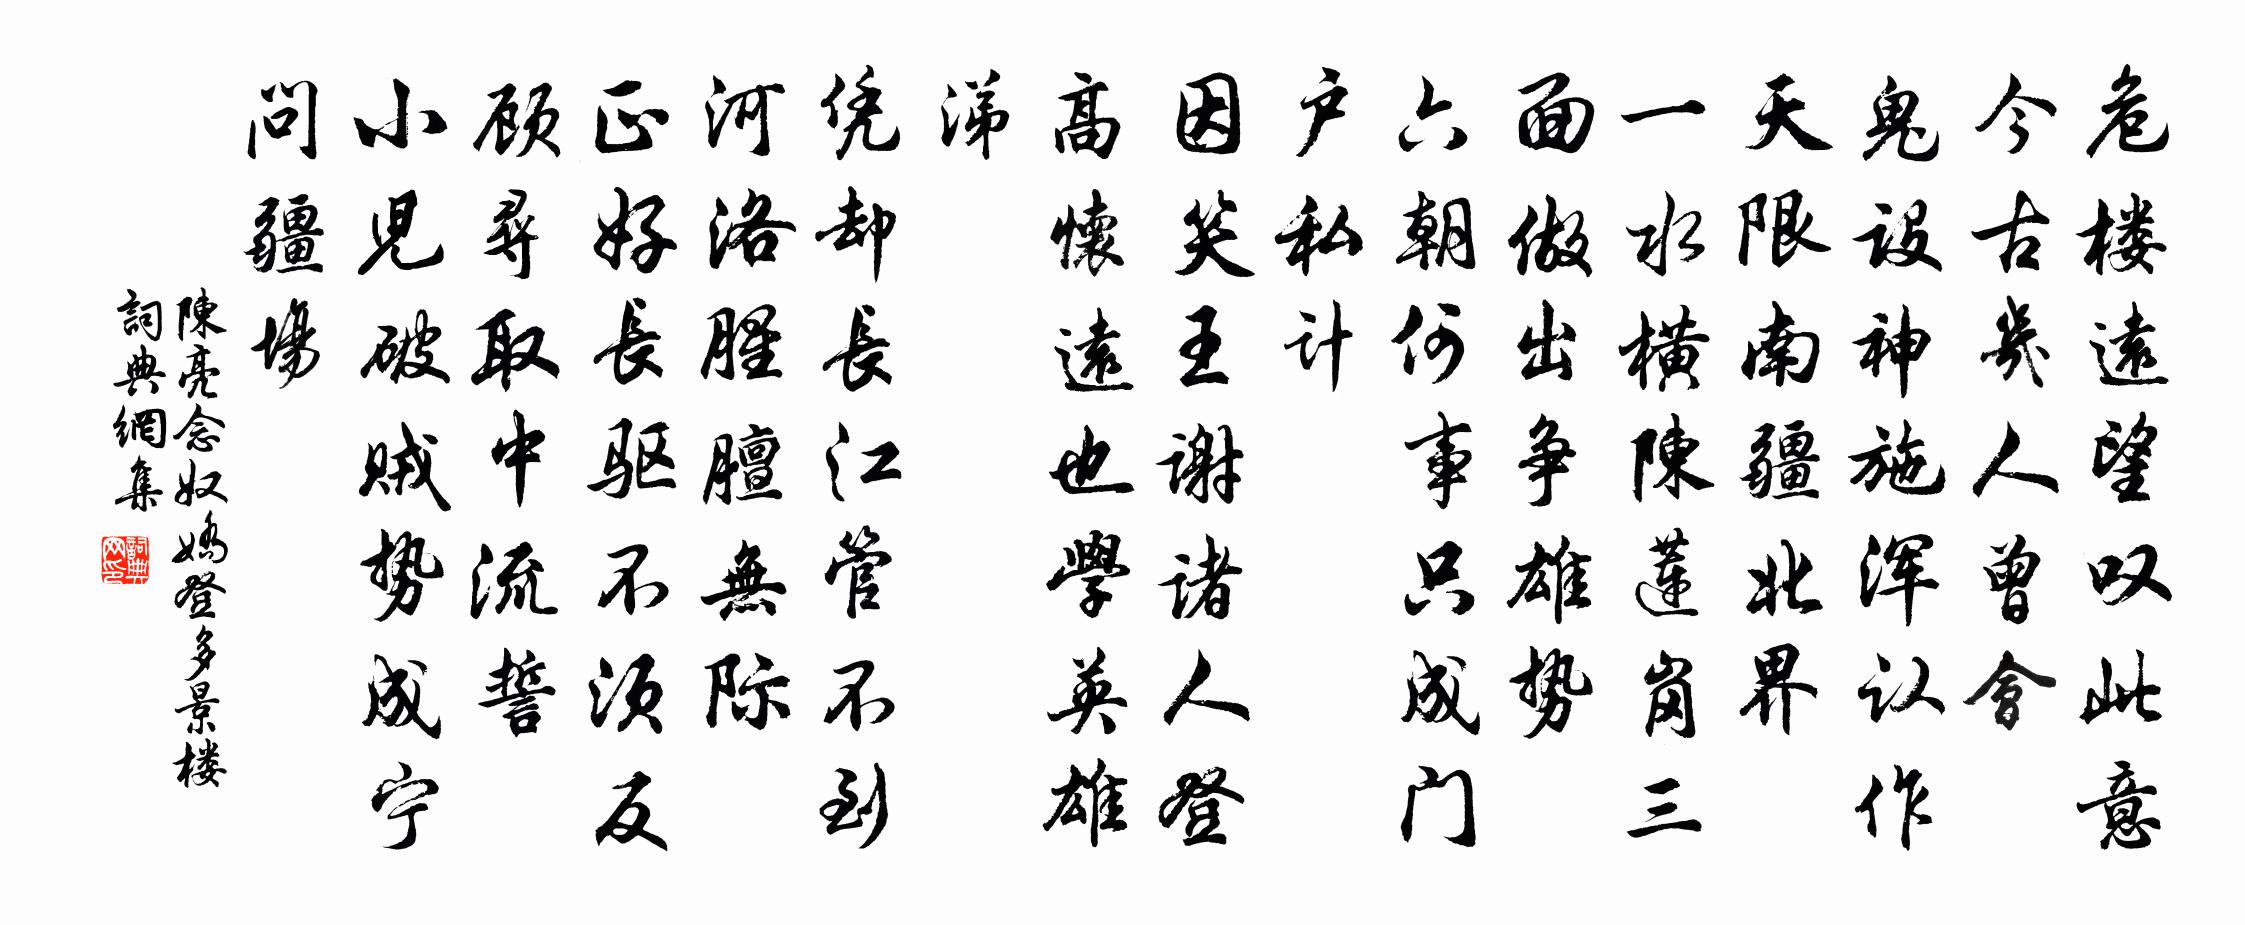 危楼遠望叹此意
今古幾人曾會
鬼设神施浑认作
天限南疆北界
一水横陳莲岗三
面做出争雄势
六朝何事只成门
户私计
因笑王谢诸人登
高懷遠也學英雄
涕
凭却長江管不到
河洛腥膻無际
正好長驱不须反
顾尋取中流誓
小児破贼势成宁
問疆場
陳亮念奴嬌登多景楼
詞典網集
詞典网印